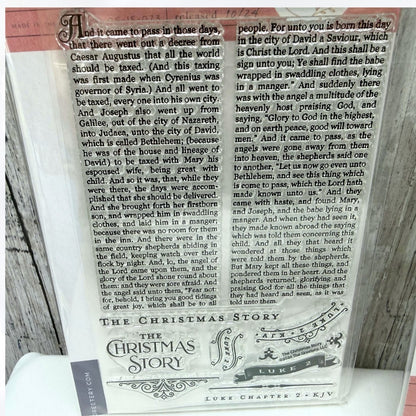 MADE IN THE
released 10/24
And it came to pass in those days,
that there went out a decree from
Caesar Augustus that all the world
should be taxed. (And this taxing
was first made when Cyrenius was
governor of Syria.) And all went to
be taxed, every one into his own city.
And Joseph also went up from
Galilee, out of the city of Nazareth,
into Judaea, unto the city of David,
which is called Bethlehem; (because
he was of the house and lineage of
David:) to be taxed with Mary his
espoused wife, being great with
child. And so it was, that, while they
were there, the days were accom-
plished that she should be delivered.
And she brought forth her firstborn
son, and wrapped him in swaddling
clothes, and laid him in a manger;
because there was no room for them
in the inn. And there were in the
same country shepherds abiding in
the field, keeping watch over their
flock by night. And, lo, the angel of
the Lord came upon them, and the
glory of the Lord shone round about
them: and they were sore afraid. And
the angel said unto them, "Fear not:
for, behold, I bring you good tidings
of great joy, which shall be to all
people. For unto you is born this day
in the city of David a Saviour, which
is Christ the Lord. And this shall be a
sign unto you; Ye shall find the babe
wrapped in swaddling clothes, lying
in a manger." And suddenly there
was with the angel a multitude of the
heavenly host praising God, and
saying, "Glory to God in the highest,
and on earth peace, good will toward
men." And it came to pass, as the
angels were gone away from them
into heaven, the shepherds said one
to another, "Let us now go even unto
Bethlehem, and see this thing which
is come to pass, which the Lord hath
made known unto us." And they
came with haste, and found Mary,
and Joseph, and the babe lying in a
manger. And when they had seen it,
they made known abroad the saying
which was told them concerning this
child. And all they that heard it
wondered at those things which
were told them by the shepherds.
But Mary kept all these things, and
pondered them in her heart. And the
shepherds returned, glorifying and
praising God for all the things that
they had heard and seen, as it was
told unto them.
THE CHRISTMAS STORY
THE
CHRISTMAS
STORY
LUKE 2
LUKE 2 KJV
The Christmas Story
LUKE 2
LUKE CHAPTER 2 - KJV